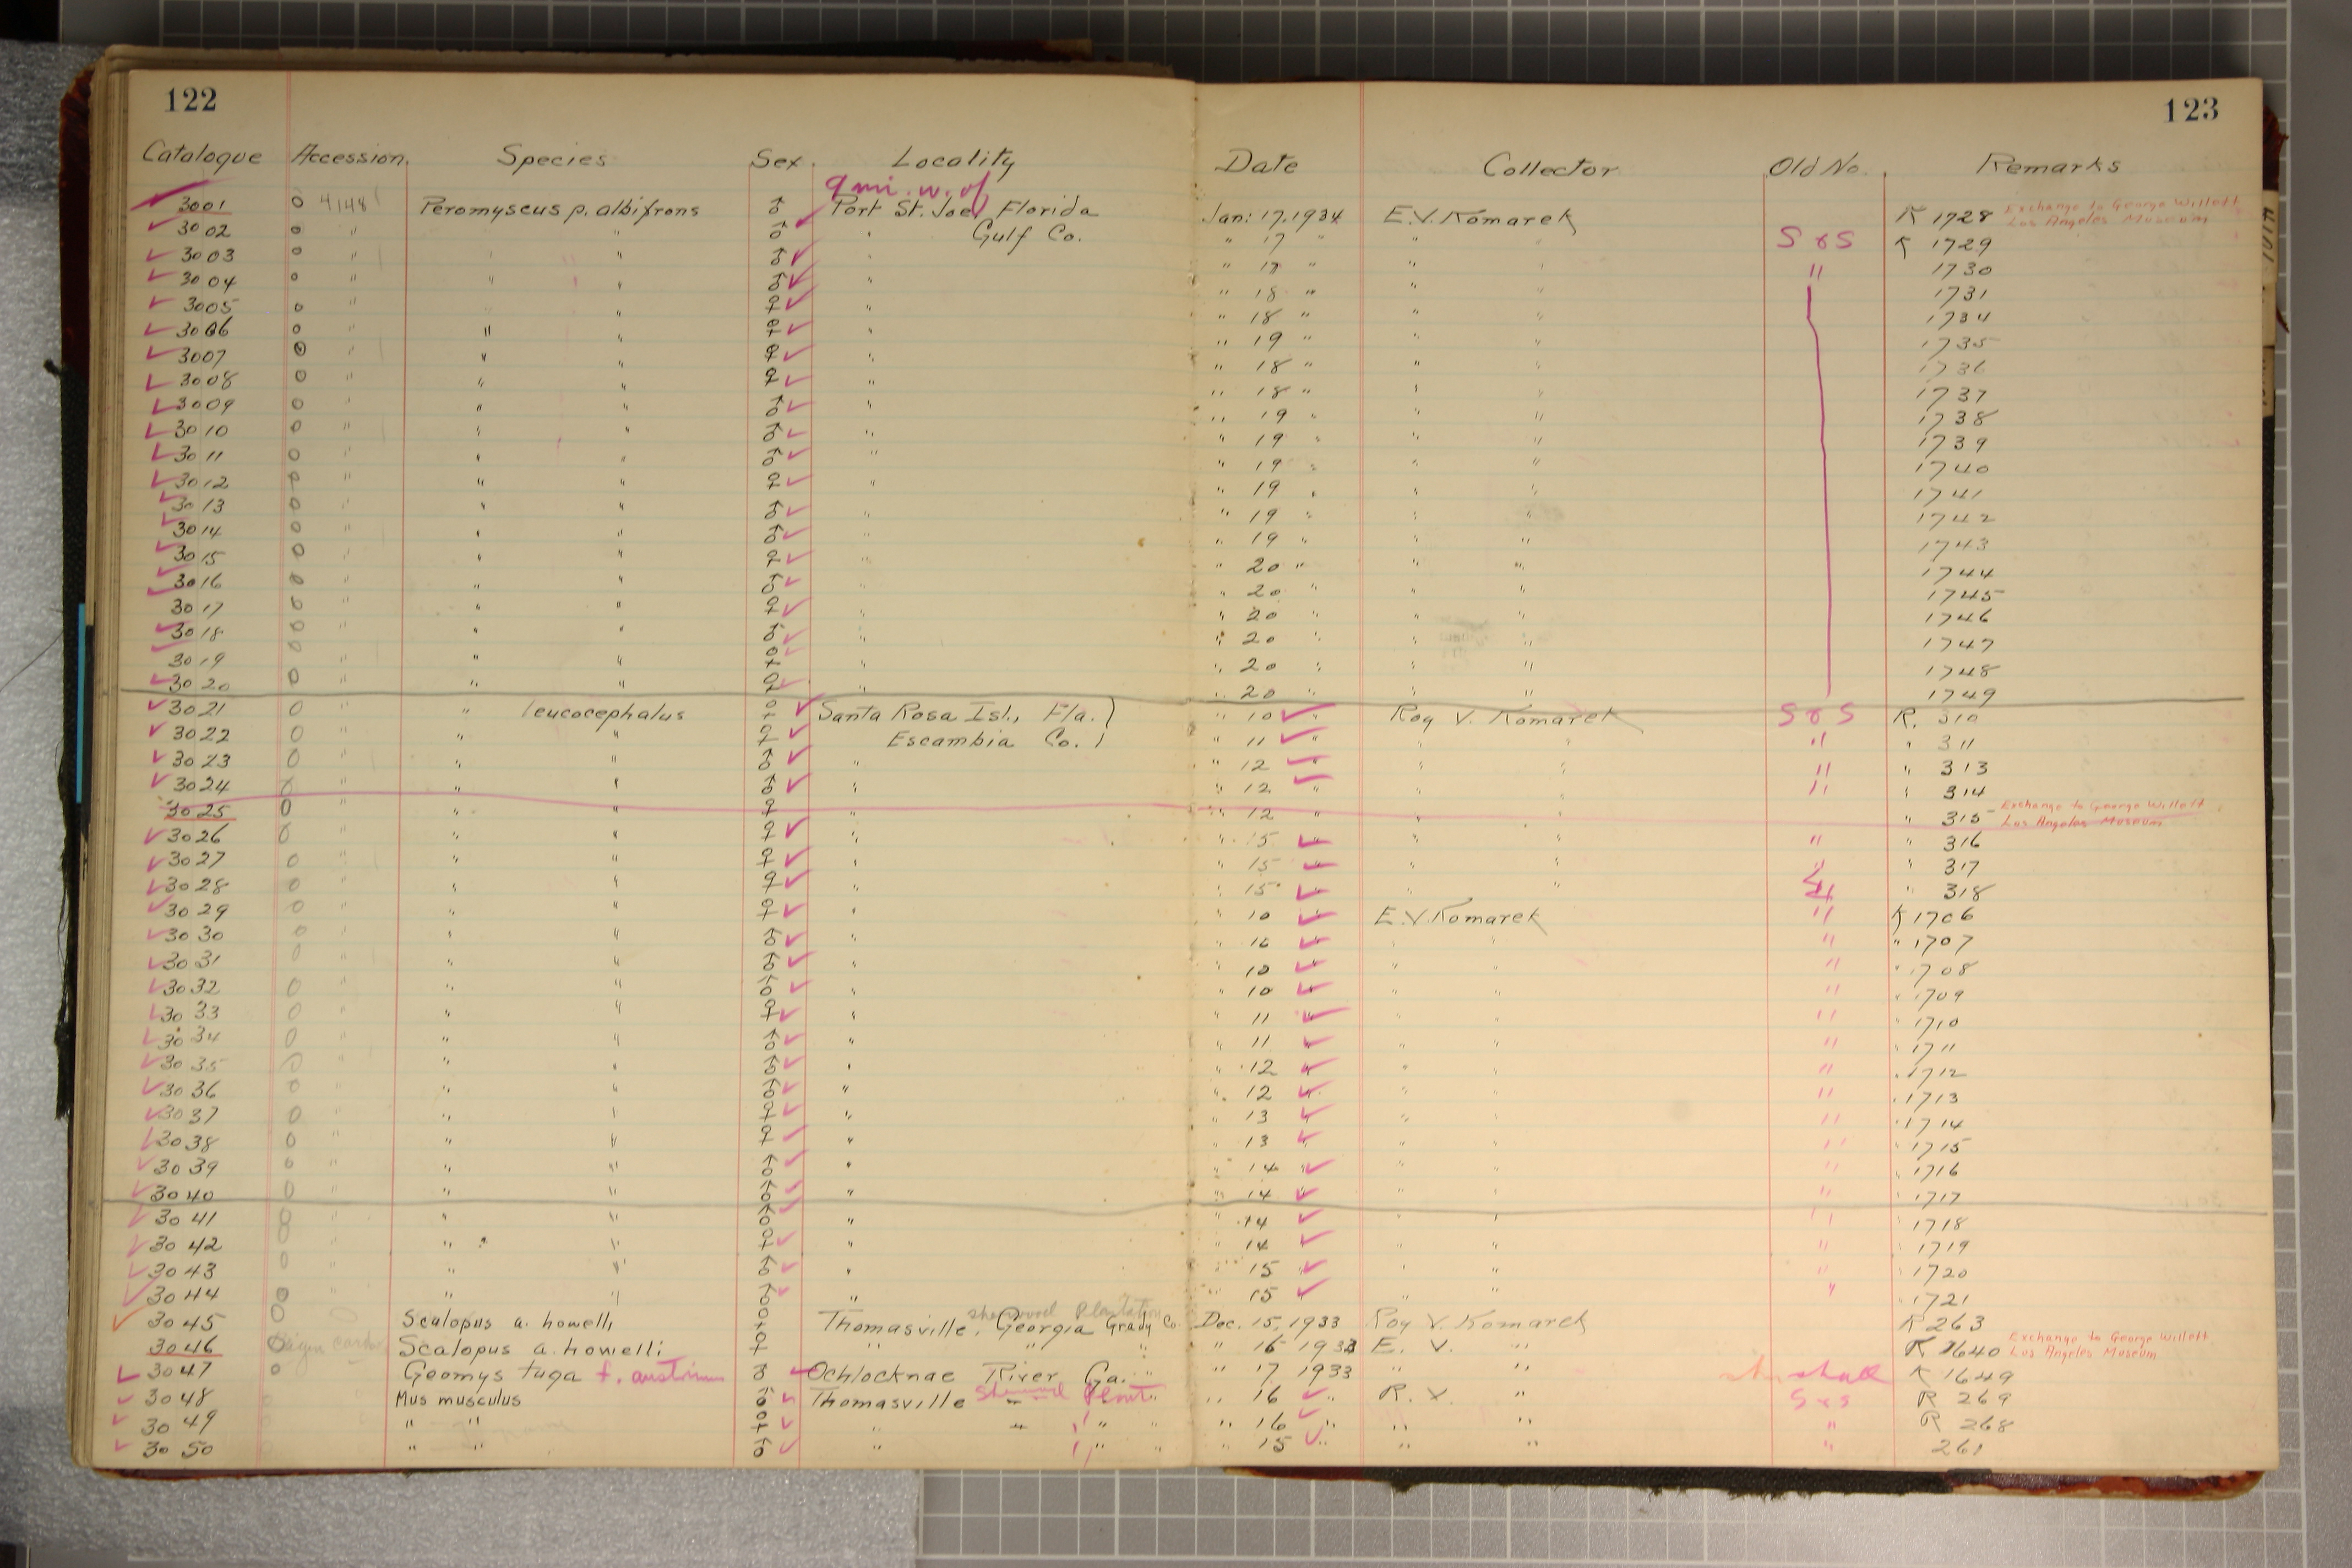 122
123
Catalogue Accession Species Sex. Locality Date Collector Old No. Remarks
9 mi. w. of
3001 0 4148 Peromyscus p. albifrons ♂ Port St. Joe, Florida Jan. 17, 1934 E.V. Komarek K 1728 Exchange to George Willett Los Angeles Museum
3002 0 " " ♂ " Gulf Co. " 17 " " " S & S K 1729
3003 0 " " " ♂ " " 18 " " " " 1730
3004 0 " " " ♂ " " 18 " " " 1731
3005 0 " " " ♀ " " 18 " " " 1734
3006 0 " " " ♀ " " 19 " " " 1735
3007 0 " " " ♀ " " 18 " " " 1736
3008 0 " " " ♀ " " 18 " " " 1737
3009 0 " " " ♂ " " 19 " " " 1738
3010 0 " " " ♂ " " 19 " " " 1739
3011 0 " " " ♂ " " 19 " " " 1740
3012 0 " " " ♀ " " 19 " " " 1741
3013 0 " " " ♂ " " 19 " " " 1742
3014 0 " " " ♂ " " 19 " " " 1743
3015 0 " " " ♀ " " 20 " " " 1744
3016 0 " " " ♂ " " 20 " " " 1745
3017 0 " " " ♀ " " 20 " " " 1746
3018 0 " " " ♂ " " 20 " " " 1747
3019 0 " " " ♀ " " 20 " " " 1748
3020 0 " " " ♀ " " 20 " " " 1749
3021 0 " " leucocephalus ♀ Santa Rosa Isl., Fla. " 10 " Roy V. Komarek S & S R. 310
3022 0 " " " ♀ Escambia Co. " 11 " " " " " 311
3023 0 " " " ♂ " " 12 " " " " " 313
3024 0 " " " ♂ " " 12 " " " " " 314
3025 0 " " " ♀ " " 12 " " " " 315 Exchange to George Willett Los Angeles Museum
3026 0 " " " ♀ " " 15 " " " " " 316
3027 0 " " " ♀ " " 15 " " " " 317
3028 0 " " " ♀ " " 15 " " " " " 318
3029 0 " " " ♀ " " 10 " E.V. Komarek " K 1706
3030 0 " " " ♂ " " 10 " " " " " 1707
3031 0 " " " ♂ " " 10 " " " " " 1708
3032 0 " " " ♂ " " 10 " " " " " 1709
3033 0 " " " ♀ " " 11 " " " " " 1710
3034 0 " " " ♂ " " 11 " " " " " 1711
3035 0 " " " ♂ " " 12 " " " " " 1712
3036 0 " " " ♂ " " 12 " " " " " 1713
3037 0 " " " ♀ " " 13 " " " " " 1714
3038 0 " " " ♀ " " 13 " " " " " 1715
3039 0 " " " ♂ " " 14 " " " " " 1716
3040 0 " " " ♂ " " 14 " " " " " 1717
3041 0 " " " ♂ " " 14 " " " " " 1718
3042 0 " " " ♀ " " 14 " " " " " 1719
3043 0 " " " ♂ " " 15 " " " " " 1720
3044 0 " " " ♂ " " 15 " " " " " 1721
Sherwood Plantation
3045 0 Scalopus a. howelli ♀ Thomasville, Georgia Grady Co. Dec. 15, 1933 Roy V. Komarek R 263
3046 0 Scalopus a. howelli ♀ " " " " 16 1933 E. V. " K 1640 Exchange to George Willett Los Angeles Museum
3047 0 Geomys tuza f. austrinus ♂ Ochlocknae River Ga. " " 17 1933 " " K 1649
3048 Mus musculus ♂ Thomasville " Sherwood Plant. " " 16 " R. V. " S & S R 269
3049 " " ♀ " " " " 16 " " " " R 268
3050 " " ♂ " " " " 15 " " " " 261